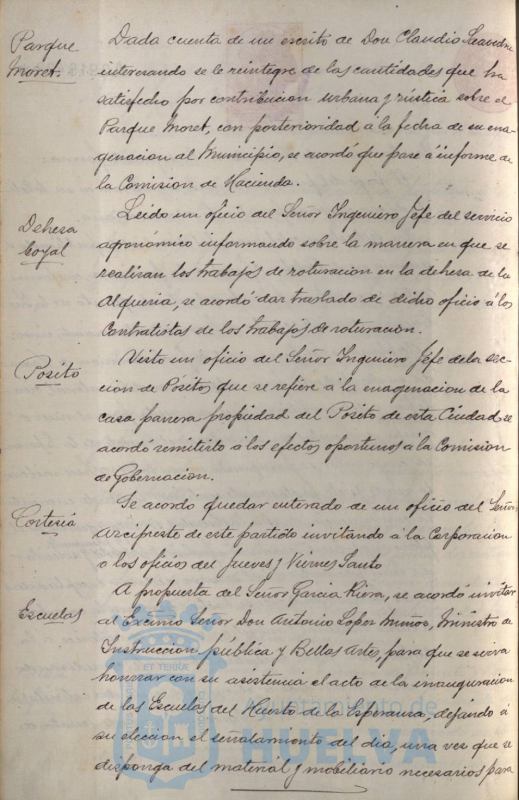 Parque
Moret.
Dada cuenta de un escrito de Don Claudio Leandro
interesando se le reintegre de las cantidades que ha
satisfecho por contribucion urbana y rústica sobre el
Parque Moret, con posterioridad á la fecha de su ena-
genacion al Municipio, se acordó que pase á informe de
la Comision de Hacienda.
Dehesa
boyal
Leido un oficio del Señor Ingeniero Jefe del servicio
agronómico informando sobre la manera en que se
realizan los trabajos de roturacion en la dehesa de la
Alqueria, se acordó dar traslado de dicho oficio á los
Contratistas de los trabajos de roturacion.
Posito
Visto un oficio del Señor Ingeniero Jefe de la sec-
cion de Pósitos que se refiere á la enagenacion de la
casa panera propiedad del Posito de esta Ciudad se
acordó remitirlo á los efectos oportunos á la Comision
de Gobernacion.
Cortesia
Se acordó quedar enterado de un oficio del Señor
Arcipreste de este partido invitando á la Corporacion
á los oficios del Jueves y Viernes Santo
Escuelas
A propuesta del Señor Garcia Riera, se acordó invitar
al Excmo Señor Don Antonio Lopez Muñoz, Ministro de
Instruccion pública y Bellas Artes, para que se sirva
honrar con su asistencia el acto de la inauguracion
de las Escuelas del Huerto de la Esperanza, dejando á
su eleccion el señalamiento del dia, una vez que se
disponga del material y mobiliario necesarios para
ET TERRAE
Ayuntamiento de
HUELVA